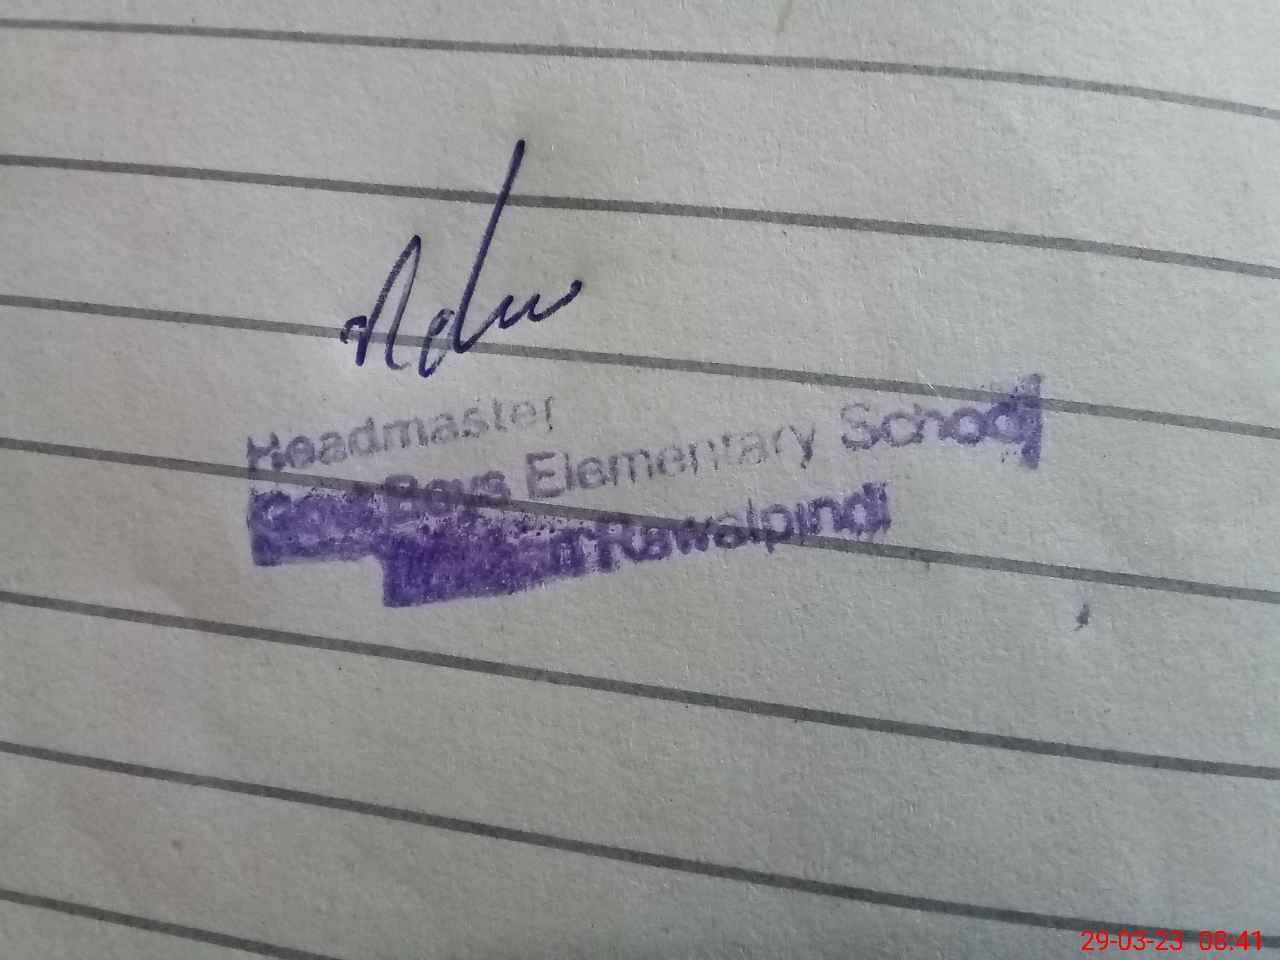 Headmaster
Govt Boys Elementary School
Rawalpindi
29-03-23 08:41